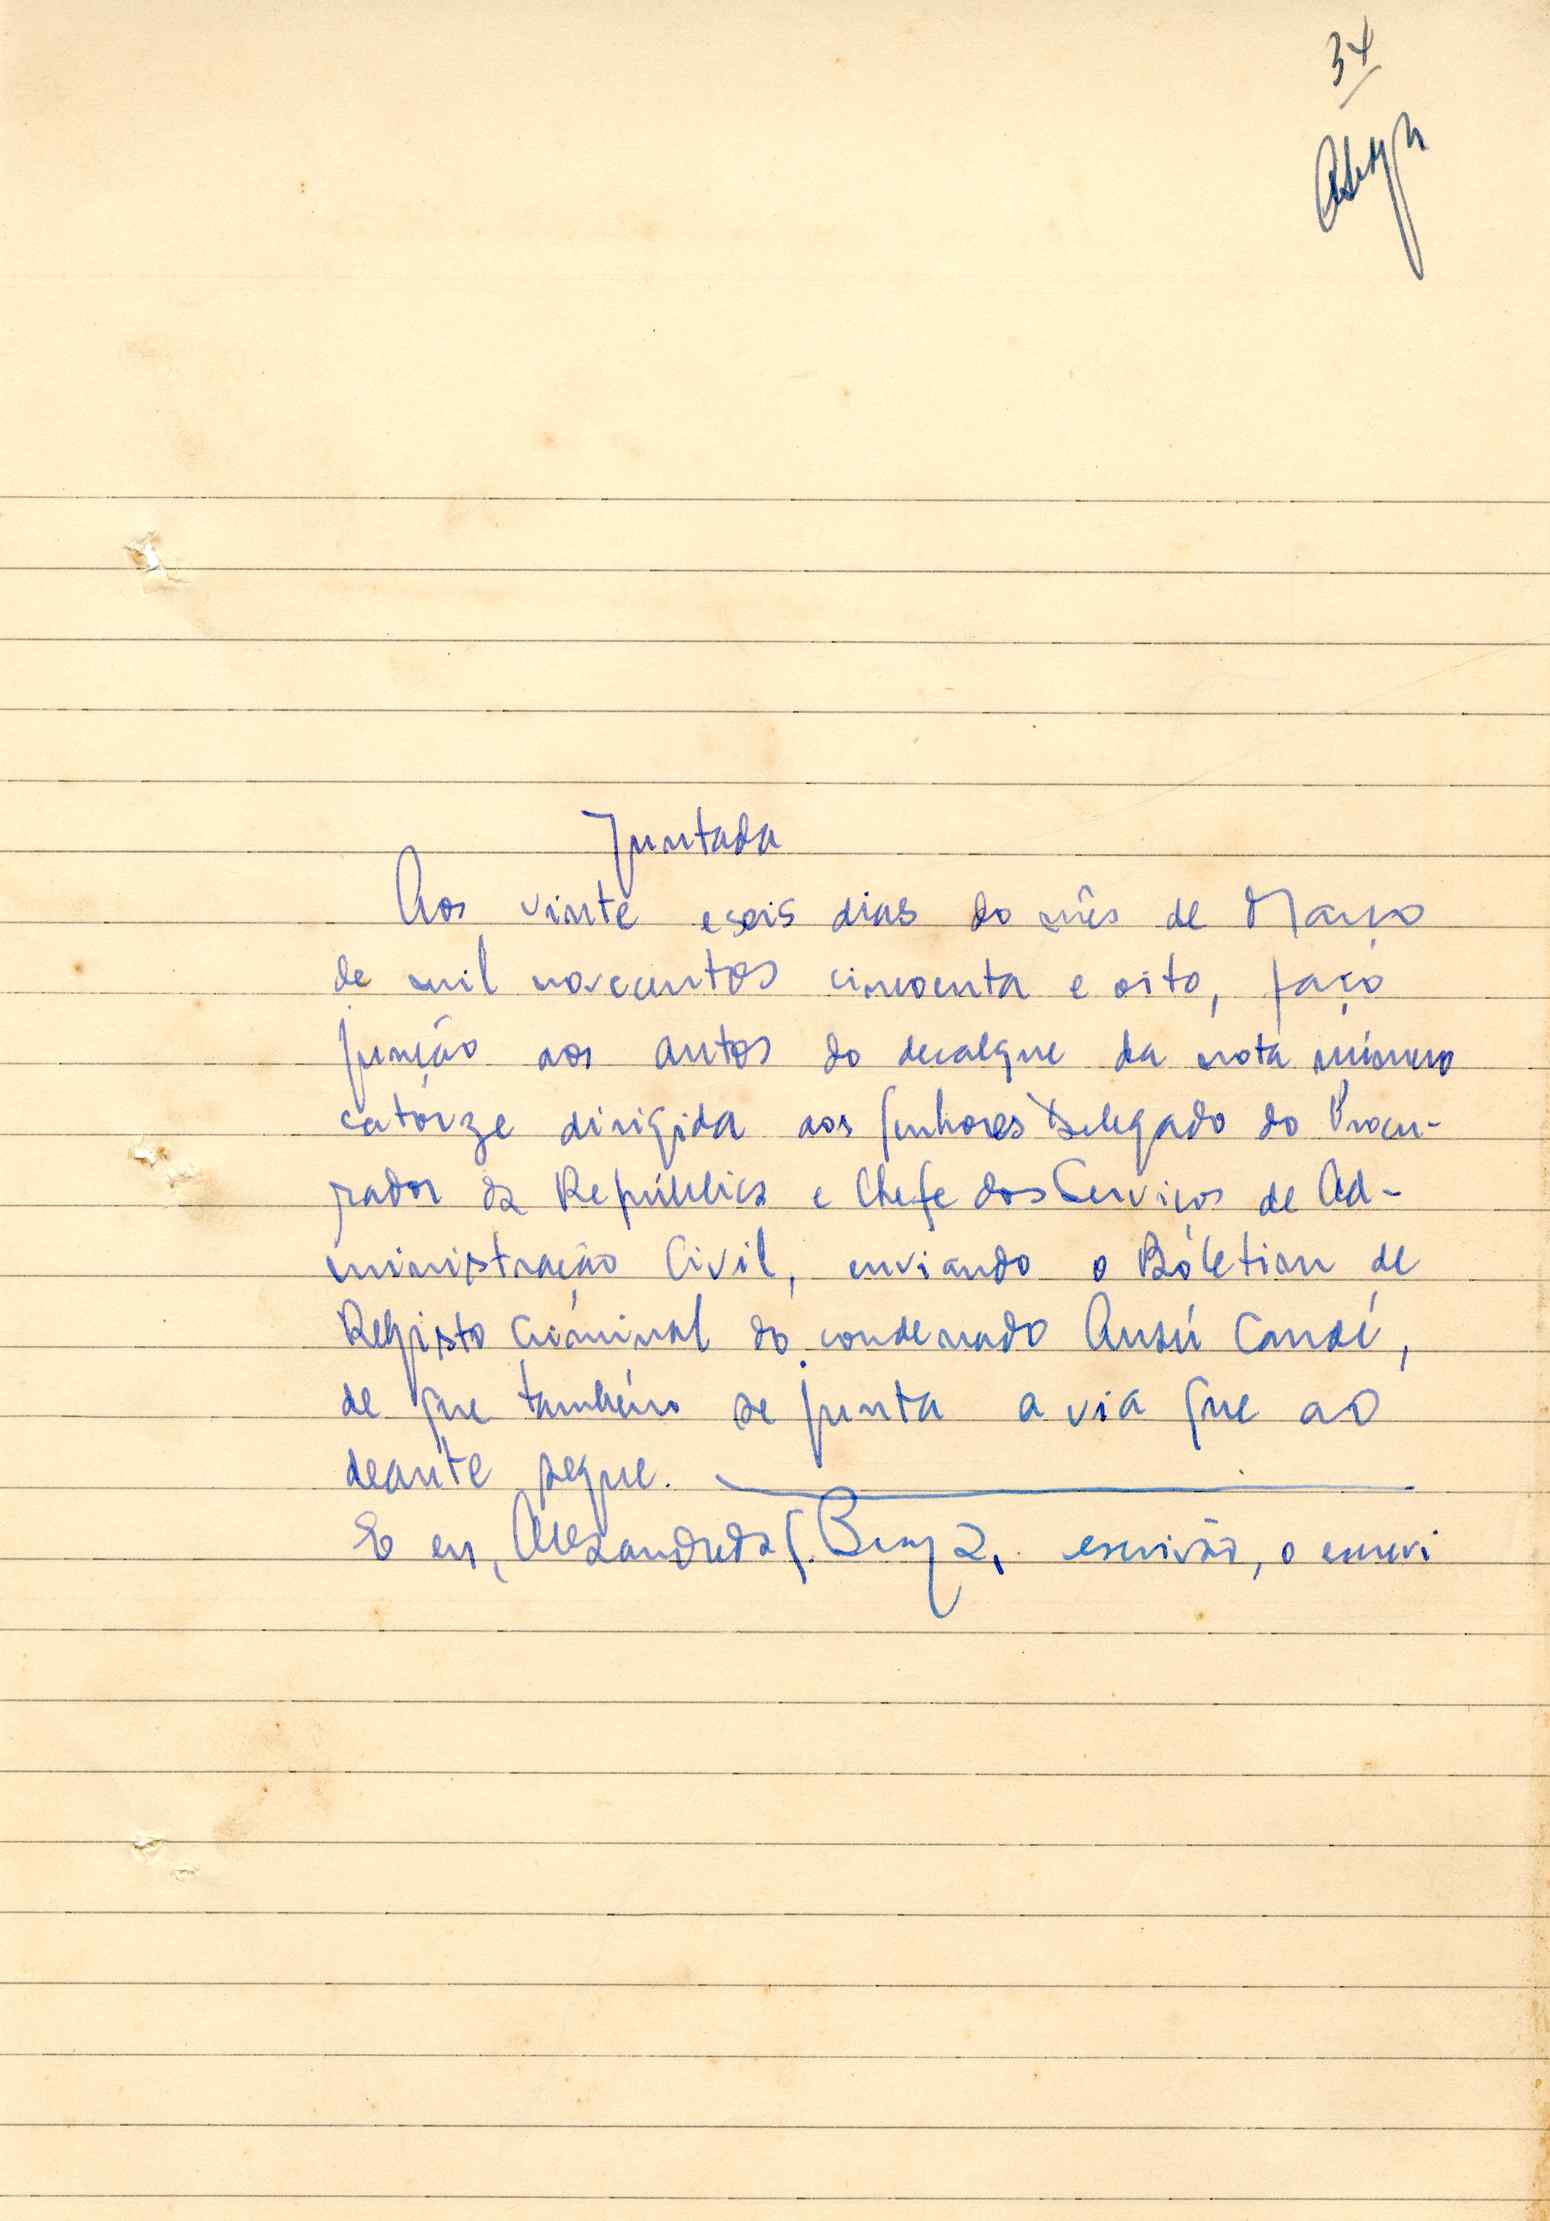 34
Juntada
Aos vinte e seis dias do mês de Março
de mil novecentos cincoenta e oito, faço
junção aos autos do decalque da nota número
catorze dirigida aos Senhores Delegado do Procu-
rador da República e Chefe dos Serviços de Ad-
ministração Civil, enviando o Bóletim de
Registo Criminal do condenado Ansú Candé,
de que também se junta a via que ao
deante segue.
E eu, Alexandre da S. Braga, escrivão, o escrevi